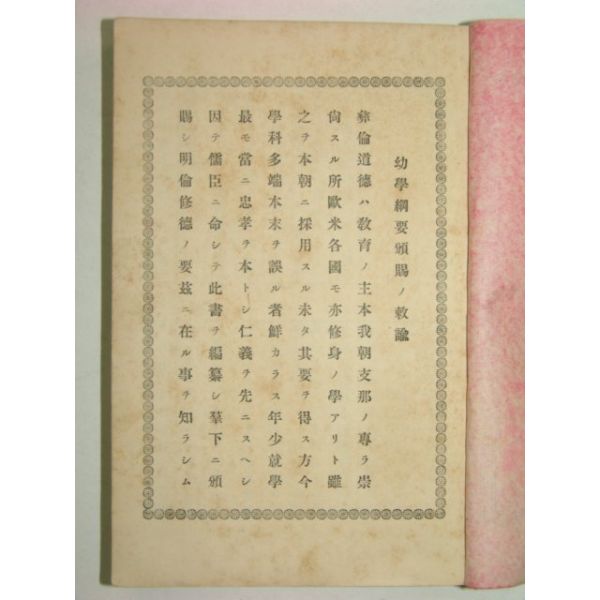 幼學綱要頒賜ノ敕諭
彝倫道德ハ敎育ノ主本我朝支那ノ專ラ崇
尙スル所歐米各國モ亦修身ノ學アリト雖
之ヲ本朝ニ採用スル未タ其要ヲ得ス方今
學科多端本末ヲ誤ル者鮮カラス年少就學
最モ當ニ忠孝ヲ本トシ仁義ヲ先ニスヘシ
因テ儒臣ニ命シテ此書ヲ編纂シ羣下ニ頒
賜シ明倫修德ノ要茲ニ在ル事ヲ知ラシム